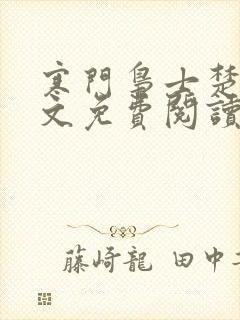 寒門梟士楚
文免費閱讀
藤崎龍 田中